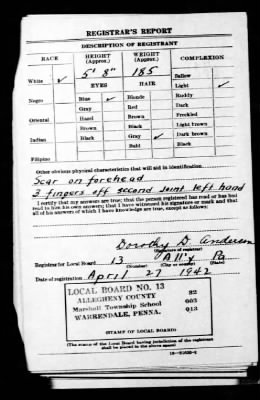 REGISTRAR'S REPORT
DESCRIPTION OF REGISTRANT
RACE HEIGHT (Approx.) WEIGHT (Approx.) COMPLEXION
5' 8" 185 Sallow
White ✓ EYES HAIR Light ✓
Blue ✓ Blonde Ruddy
Negro Gray Red Dark
Oriental Hazel Brown Freckled
Brown Black Light brown
Indian Black Gray ✓ Dark brown
Bald Black
Filipino
Other obvious physical characteristics that will aid in identification
Scar on forehead
3 fingers off second joint left hand
I certify that my answers are true; that the person registered has read or has had
read to him his own answers; that I have witnessed his signature or mark and that
all of his answers of which I have knowledge are true, except as follows:
Dorothy D. Anderson
(Signature of registrar)
Registrar for Local Board 13 All'y Pa
(Number) (City or county) (State)
Date of registration April 27 1942
LOCAL BOARD NO. 13 82
ALLEGHENY COUNTY 003
Marshall Township School 013
WARRENDALE, PENNA.
(STAMP OF LOCAL BOARD)
(The stamp of the Local Board having jurisdiction of the registrant
shall be placed in the above space)